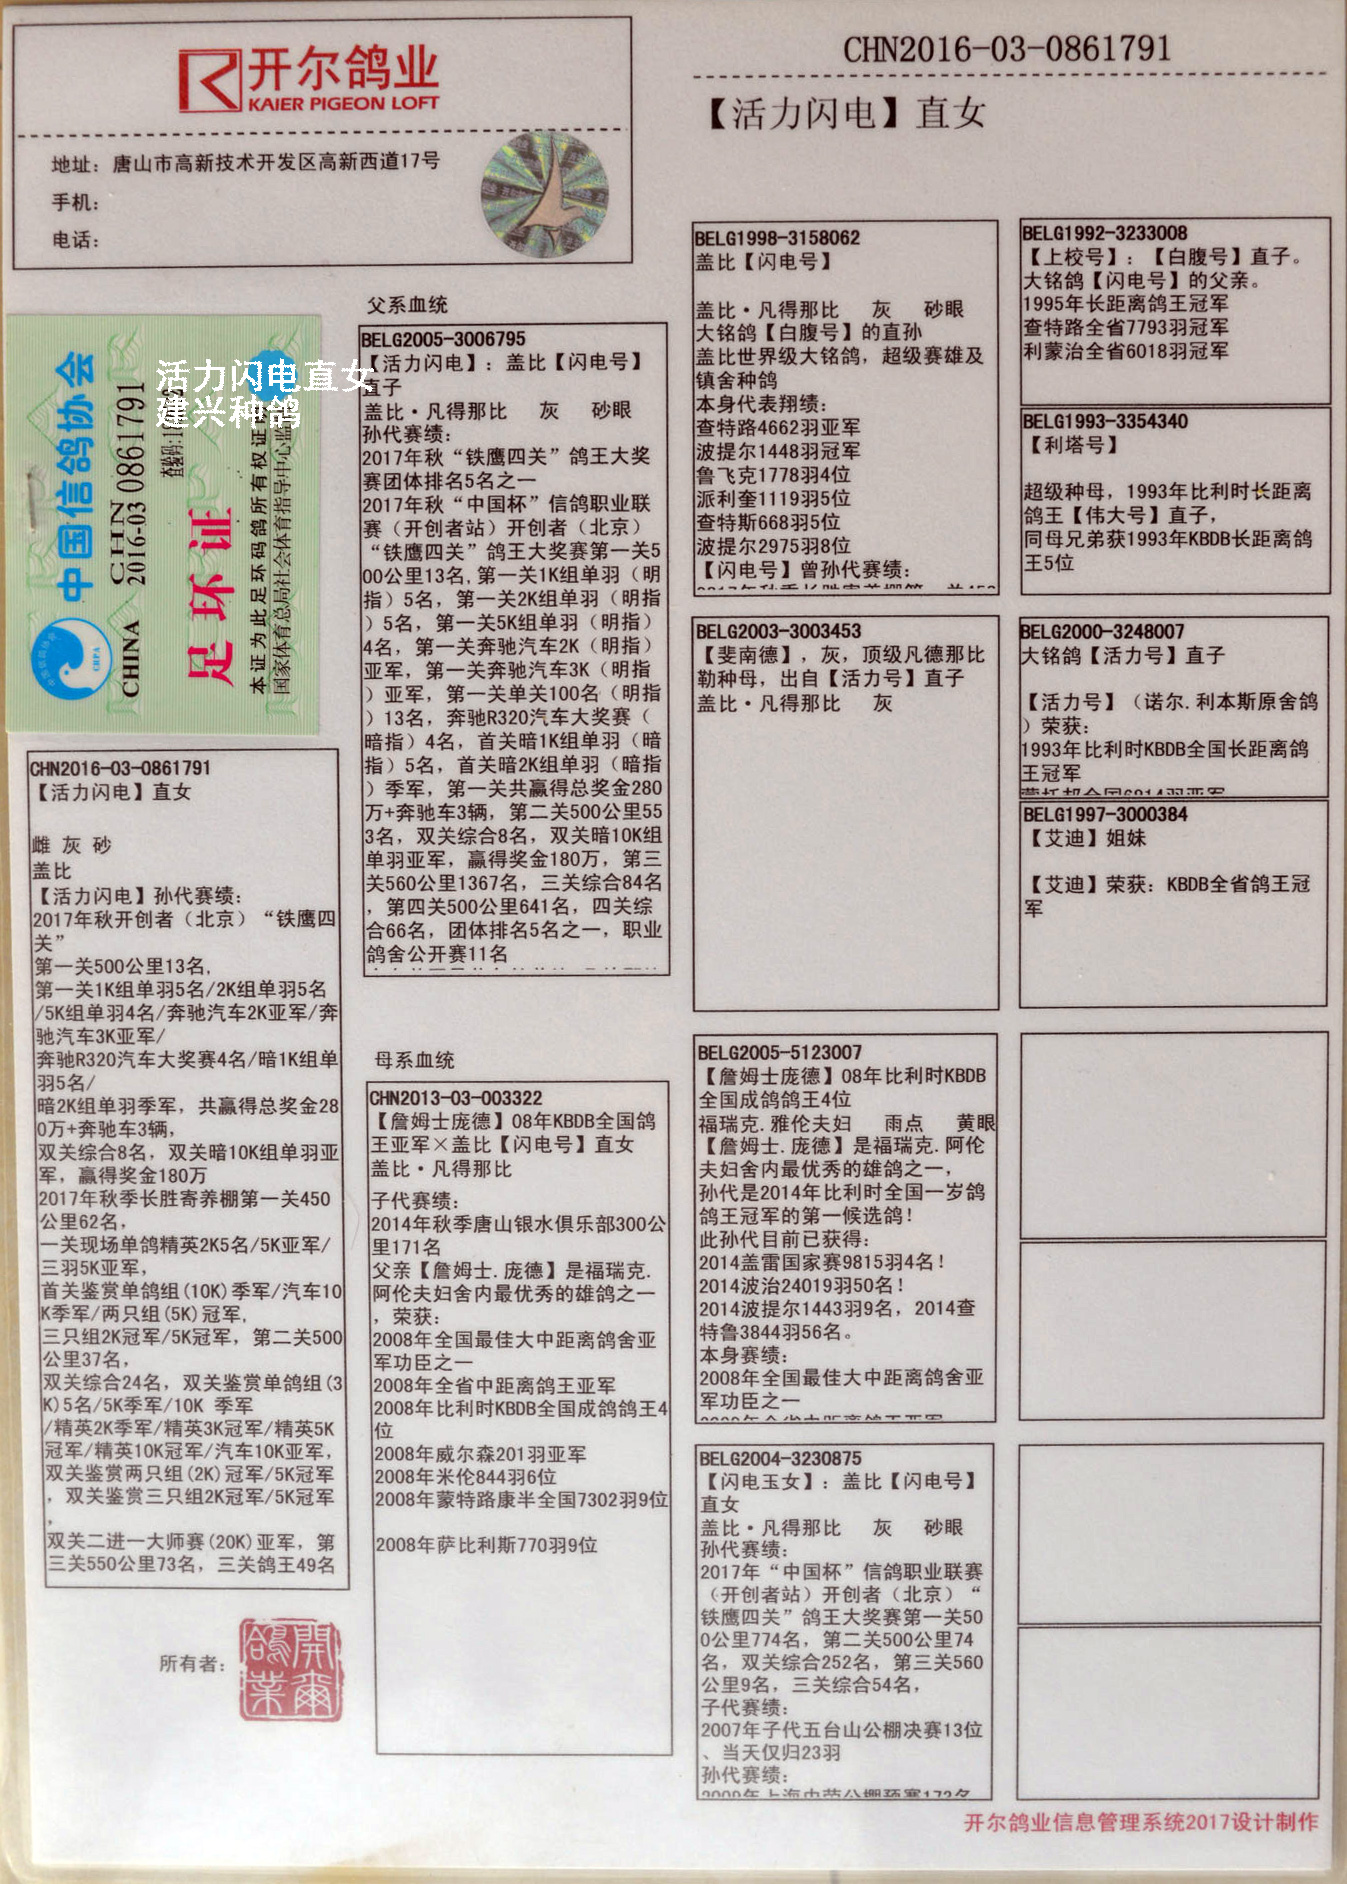 开尔鸽业
KAIER PIGEON LOFT
地址：唐山市高新技术开发区高新西道17号
手机：
电话：
CHN2016-03-0861791
【活力闪电】直女
中国信鸽协会
CHN
2016-03 0861791
CHINA
足环证
本证为此足环码鸽所有权证
国家体育总局社会体育指导中心监
活力闪电直女
建兴种鸽
CHN2016-03-0861791
【活力闪电】直女
雌 灰 砂
盖比
【活力闪电】孙代赛绩：
2017年秋开创者（北京）“铁鹰四
关”
第一关500公里13名，
第一关1K组单羽5名/2K组单羽5名
/5K组单羽4名/奔驰汽车2K亚军/奔
驰汽车3K亚军/
奔驰R320汽车大奖赛4名/暗1K组单
羽5名/
暗2K组单羽季军，共赢得总奖金28
0万+奔驰车3辆，
双关综合8名，双关暗10K组单羽亚
军，赢得奖金180万
2017年秋季长胜寄养棚第一关450
公里62名，
一关现场单鸽精英2K5名/5K亚军/
三羽5K亚军，
首关鉴赏单鸽组(10K)季军/汽车10
K季军/两只组(5K)冠军，
三只组2K冠军/5K冠军，第二关500
公里37名，
双关综合24名，双关鉴赏单鸽组(3
K)5名/5K季军/10K 季军
/精英2K季军/精英3K冠军/精英5K
冠军/精英10K冠军/汽车10K亚军，
双关鉴赏两只组(2K)冠军/5K冠军
，双关鉴赏三只组2K冠军/5K冠军
，
双关二进一大师赛(20K)亚军，第
三关550公里73名，三关鸽王49名
所有者：
開爾鴿業
父系血统
BELG2005-3006795
【活力闪电】：盖比【闪电号】
直子
盖比·凡得那比 灰 砂眼
孙代赛绩：
2017年秋“铁鹰四关”鸽王大奖
赛团体排名5名之一
2017年秋“中国杯”信鸽职业联
赛（开创者站）开创者（北京）
“铁鹰四关”鸽王大奖赛第一关5
00公里13名，第一关1K组单羽（明
指）5名，第一关2K组单羽（明指
）5名，第一关5K组单羽（明指）
4名，第一关奔驰汽车2K（明指）
亚军，第一关奔驰汽车3K（明指
）亚军，第一关单关100名（明指
）13名，奔驰R320汽车大奖赛（
暗指）4名，首关暗1K组单羽（暗
指）5名，首关暗2K组单羽（暗指
）季军，第一关共赢得总奖金280
万+奔驰车3辆，第二关500公里55
3名，双关综合8名，双关暗10K组
单羽亚军，赢得奖金180万，第三
关560公里1367名，三关综合84名
，第四关500公里641名，四关综
合66名，团体排名5名之一，职业
鸽舍公开赛11名
母系血统
CHN2013-03-003322
【詹姆士庞德】08年KBDB全国鸽
王亚军×盖比【闪电号】直女
盖比·凡得那比
子代赛绩：
2014年秋季唐山银水俱乐部300公
里171名
父亲【詹姆士.庞德】是福瑞克.
阿伦夫妇舍内最优秀的雄鸽之一
，荣获：
2008年全国最佳大中距离鸽舍亚
军功臣之一
2008年全省中距离鸽王亚军
2008年比利时KBDB全国成鸽鸽王4
位
2008年威尔森201羽亚军
2008年米伦844羽6位
2008年蒙特路康半全国7302羽9位
2008年萨比利斯770羽9位
BELG1998-3158062
盖比【闪电号】
盖比·凡得那比 灰 砂眼
大铭鸽【白腹号】的直孙
盖比世界级大铭鸽，超级赛雄及
镇舍种鸽
本身代表翔绩：
查特路4662羽亚军
波提尔1448羽冠军
鲁飞克1778羽4位
派利奎1119羽5位
查特斯668羽5位
波提尔2975羽8位
【闪电号】曾孙代赛绩：
BELG2003-3003453
【斐南德】，灰，顶级凡德那比
勒种母，出自【活力号】直子
盖比·凡得那比 灰
BELG2005-5123007
【詹姆士庞德】08年比利时KBDB
全国成鸽鸽王4位
福瑞克.雅伦夫妇 雨点 黄眼
【詹姆士.庞德】是福瑞克.阿伦
夫妇舍内最优秀的雄鸽之一，
孙代是2014年比利时全国一岁鸽
鸽王冠军的第一候选鸽！
此孙代目前已获得：
2014盖雷国家赛9815羽4名！
2014波治24019羽50名！
2014波提尔1443羽9名，2014查
特鲁3844羽56名。
本身赛绩：
2008年全国最佳大中距离鸽舍亚
军功臣之一
2008年全省中距离鸽王亚军
BELG2004-3230875
【闪电玉女】：盖比【闪电号】
直女
盖比·凡得那比 灰 砂眼
孙代赛绩：
2017年“中国杯”信鸽职业联赛
（开创者站）开创者（北京）“
铁鹰四关”鸽王大奖赛第一关50
0公里774名，第二关500公里74
名，双关综合252名，第三关560
公里9名，三关综合54名，
子代赛绩：
2007年子代五台山公棚决赛13位
、当天仅归23羽
孙代赛绩：
BELG1992-3233008
【上校号】：【白腹号】直子。
大铭鸽【闪电号】的父亲。
1995年长距离鸽王冠军
查特路全省7793羽冠军
利蒙治全省6018羽冠军
BELG1993-3354340
【利塔号】
超级种母，1993年比利时长距离
鸽王【伟大号】直子，
同母兄弟获1993年KBDB长距离鸽
王5位
BELG2000-3248007
大铭鸽【活力号】直子
【活力号】（诺尔.利本斯原舍鸽
）荣获：
1993年比利时KBDB全国长距离鸽
王冠军
BELG1997-3000384
【艾迪】姐妹
【艾迪】荣获：KBDB全省鸽王冠
军
开尔鸽业信息管理系统2017设计制作